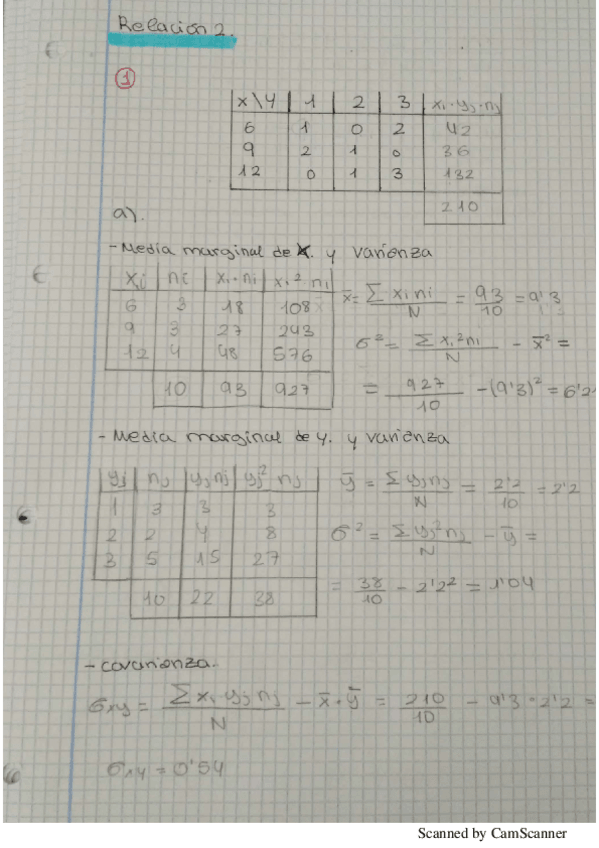 Relación 2.
1
x\y 1 2 3 xi·yj·nj
6 1 0 2 42
9 2 1 0 36
12 0 1 3 132
210
a).
- Media marginal de x. y varienza
xi ni xi·ni xi²·ni
6 3 18 108
9 3 27 243
12 4 48 576
10 93 927
x̄ = Σ xi ni / N = 93/10 = 9'3
σ² = Σ xi² ni / N - x̄² =
= 927/10 - (9'3)² = 6'21
- Media marginal de y. y varienza
yj nj yj nj yj² nj
1 3 3 3
2 2 4 8
3 5 15 27
10 22 38
ȳ = Σ yj nj / N = 2'2/10 = 2'2
σ² = Σ yj² nj / N - ȳ =
= 38/10 - 2'2² = 1'04
- covarienza.
σxy = Σ xi·yj nj / N - x̄·ȳ = 210/10 - 9'3·2'2 =
σxy = 0'54
Scanned by CamScanner